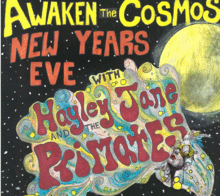 AWAKEN THE COSMOS
NEW YEARS
EVE
WITH
Hayley Jane
AND THE
PRiMATES